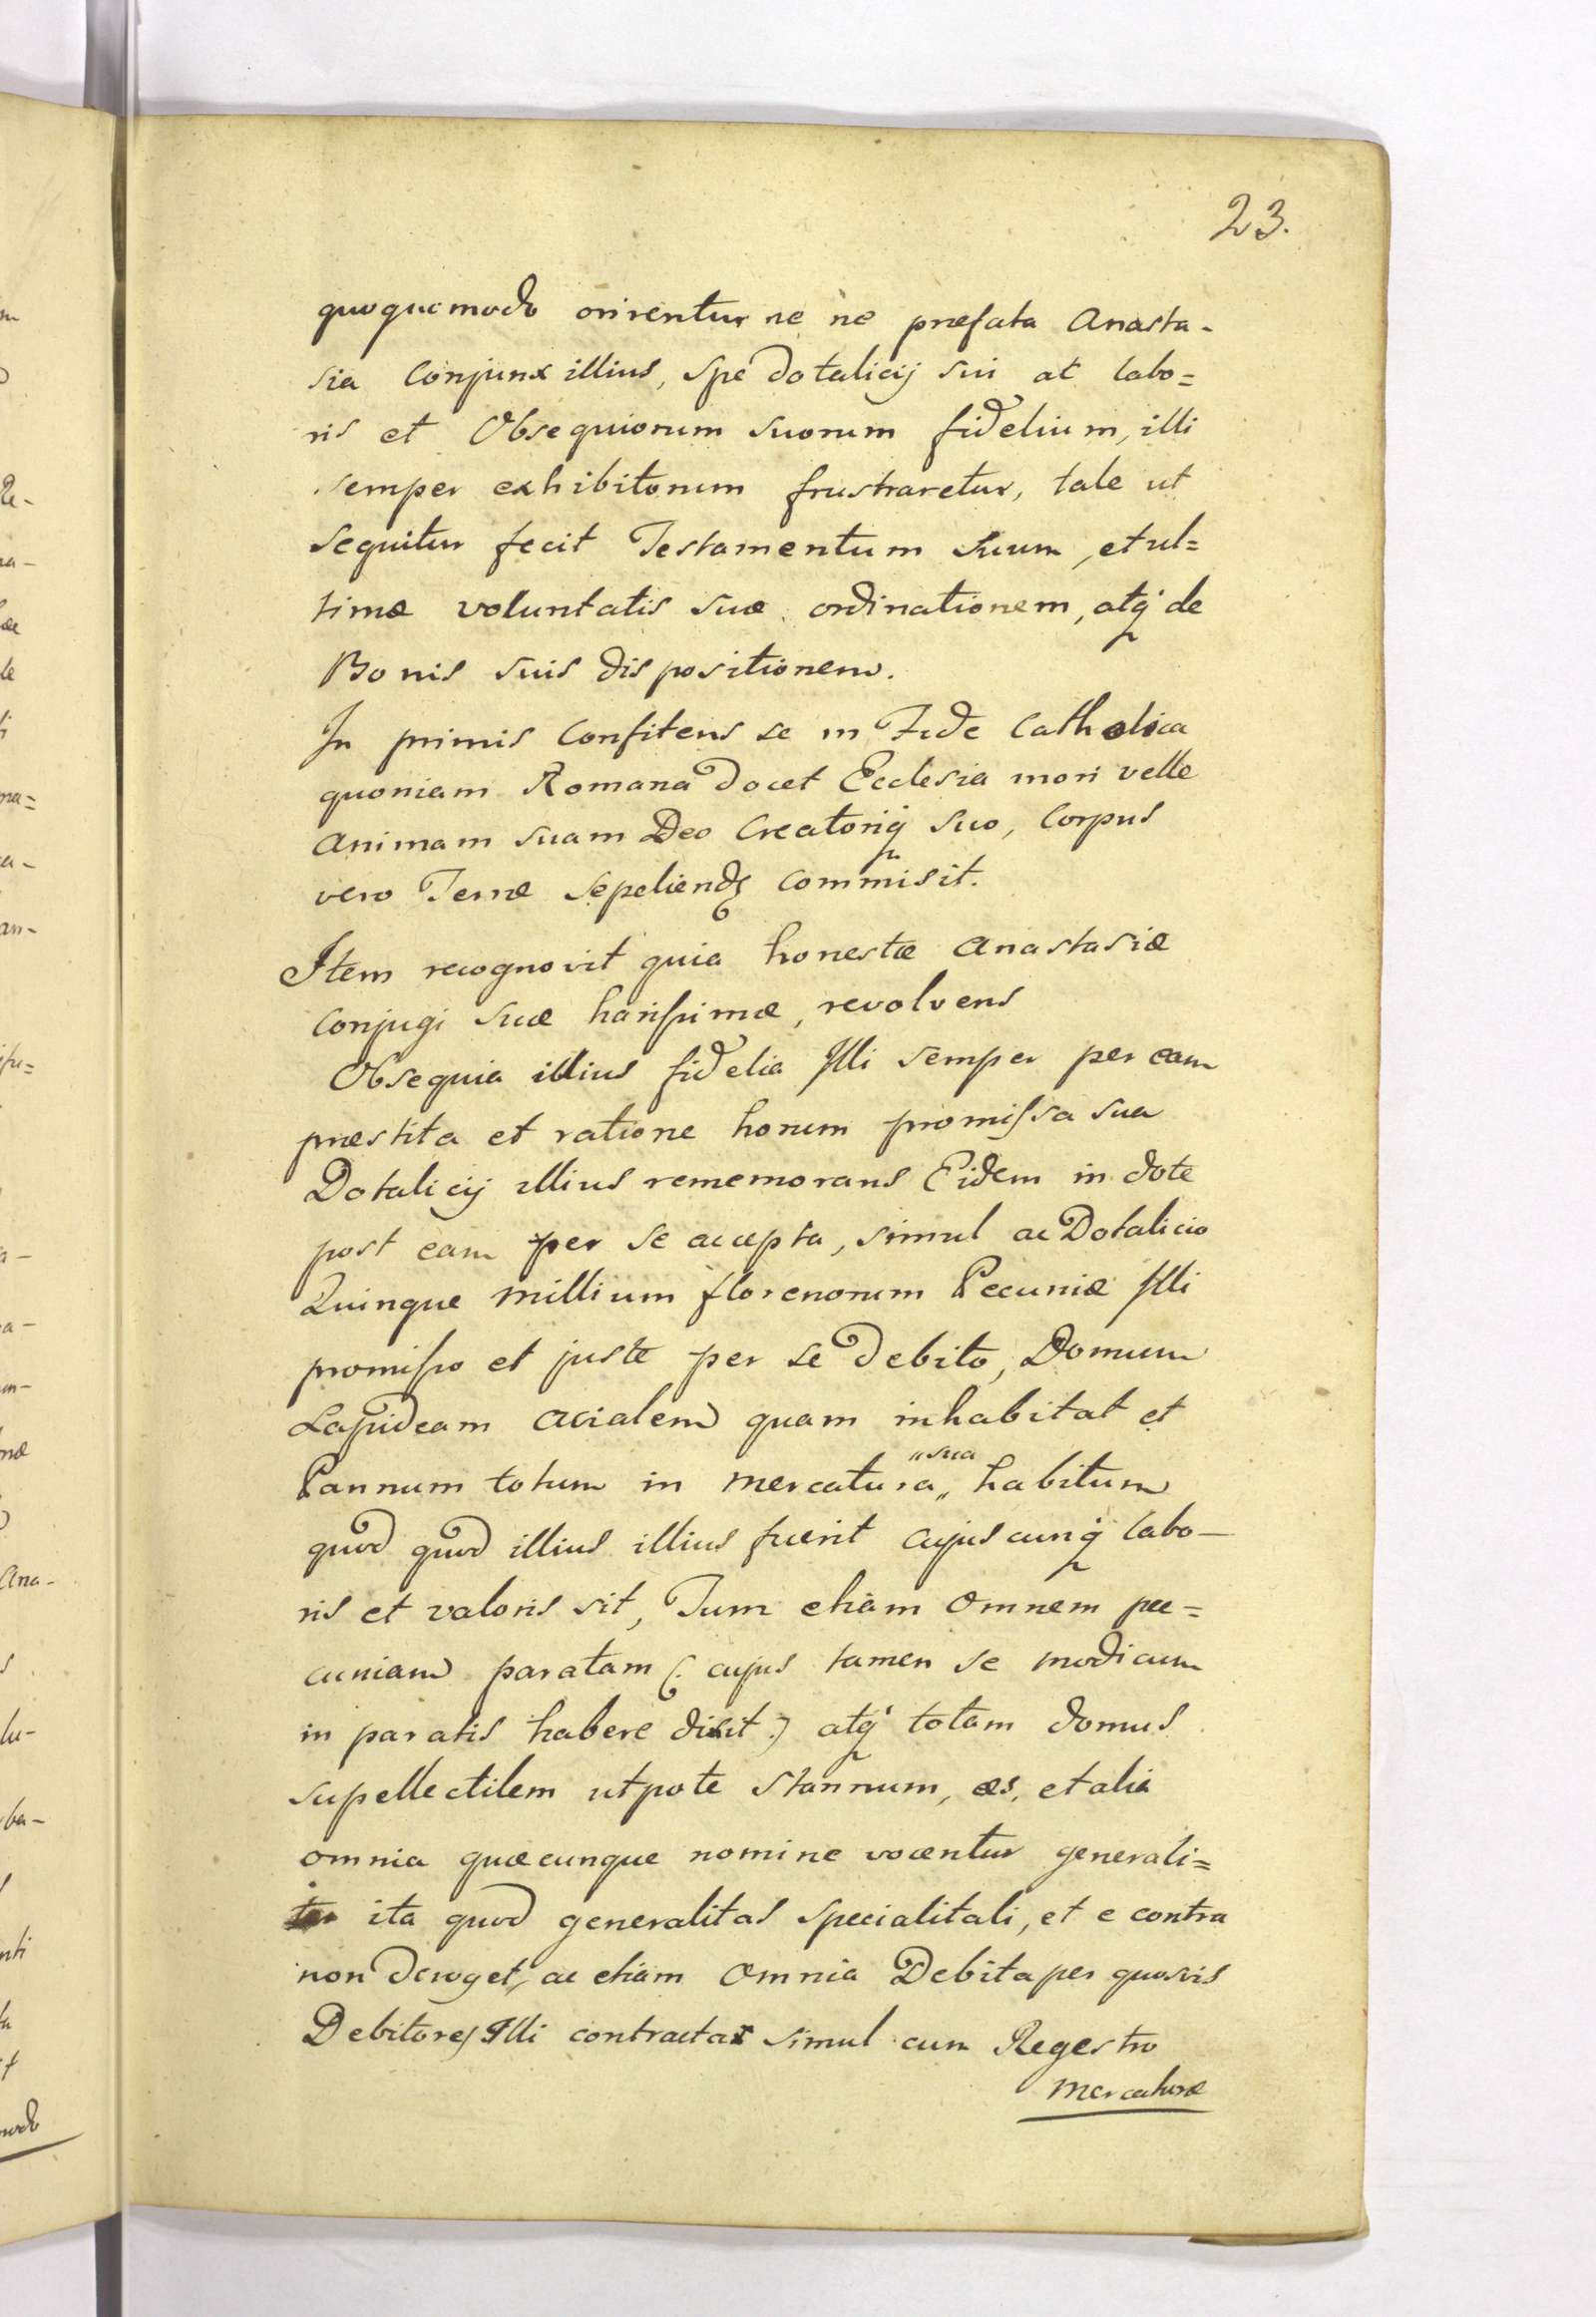 23.
quoquomodo orirentur ne ne præfata Anasta-
sia Conjunx illius, spe Dotalicij sui at labo=
ris et Obsequiorum suorum fidelium, illi
semper exhibitorum frustraretur, tale ut
sequitur fecit Testamentum suum, et ul=
timæ voluntatis suæ ordinationem, atq de
Bonis suis dispositionem.
In primis Confitens se in Fide Catholica
quoniam Romana Docet Ecclesia mori velle
Animam suam Deo Creatoriq suo, Corpus
vero Terræ sepeliend commisit.
Item recognovit quia honestæ Anastasiæ
Conjugi suæ harissimæ, revolvens
Obsequia illius fidelia Illi semper per eam
præstita et ratione horum promissa sua
Dotalicij illius rememorans Eidem in dote
post eam per se accepta, simul ac Dotalicio
Quinque millium florenorum Pecuniæ Illi
promisso et juste per se Debito, Domum
Lapideam acialem quam inhabitat et
Pannum totum in mercatura „sua„ habitum
quod quod illius illius fuerit cujuscunq labo-
ris et valoris sit, Tum etiam Omnem pec=
cuniam paratam (: cujus tamen se modicum
in paratis habere dixit :) atq totam domus
supellectilem utpote stannum, æs, et alia
omnia quæcunque nomine vocentur generali=
ter ita quod generalitas specialitati, et e contra
non Deroget, ac etiam Omnia Debita per quosvis
Debitores Illi contracta simul cum Regestro
Mercaturæ